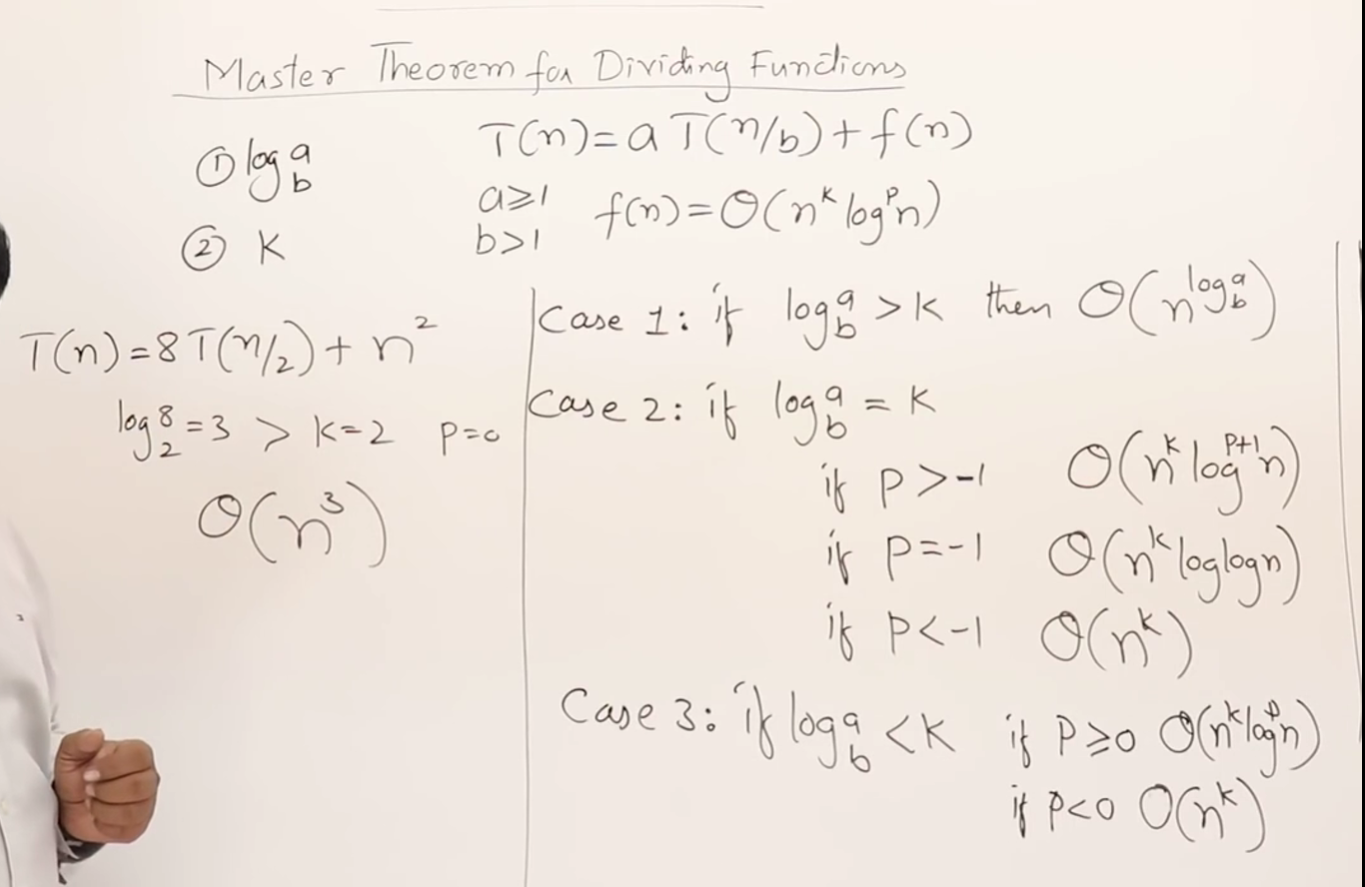 Master Theorem for Dividing Functions
① log_b^a
② K
T(n) = a T(n/b) + f(n)
a ≥ 1
b > 1
f(n) = Θ(n^k log^p n)
T(n) = 8 T(n/2) + n^2
log_2^8 = 3 > K = 2 P = 0
Θ(n^3)
Case 1: if log_b^a > K then Θ(n^{log_b^a})
Case 2: if log_b^a = K
if P > -1 Θ(n^k log^{P+1} n)
if P = -1 Θ(n^k loglogn)
if P < -1 Θ(n^k)
Case 3: if log_b^a < K if P ≥ 0 Θ(n^k log^p n)
if P < 0 O(n^k)